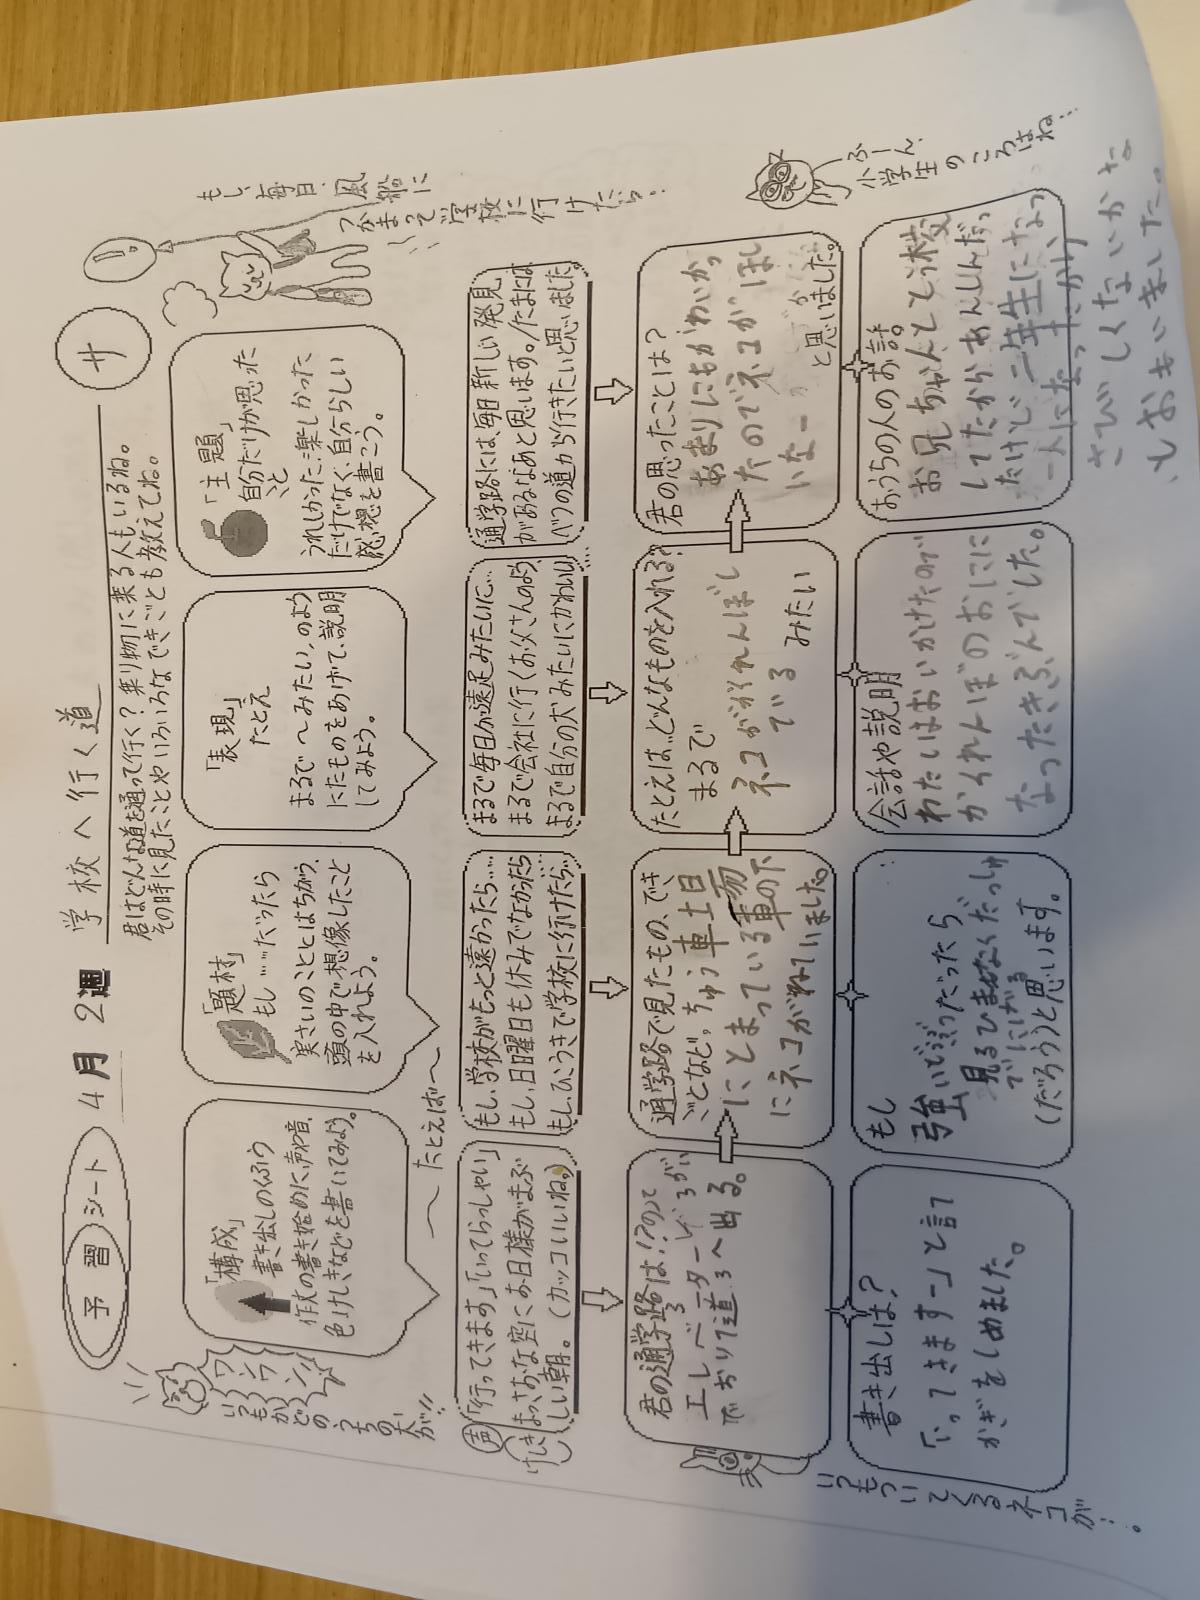 予習シート 4月 2週 学校へ行く道 サ
君はどんな道を通って行く？乗り物に乗る人も、いるね。
その時に見たことやいろいろなできごとも教えてね。
ワンワンワン！
いつもかどのうちの犬が!!
「構成」
書き出しのくふう
作文の書き始めに、声や音、
色、けしきなどを書いてみよう。
「題材」
もし……だったら
実さいのこととはちがう、
頭の中で想像したこと
を入れよう。
「表現」
たとえ
まるで〜みたい,のよう
にたものをあげて、説明
してみよう。
「主題」
自分だけが思った
こと
うれしかった、楽しかった、
だけでなく、自分らしい
感想を書こう。
もし、毎日、風船に
つかまって学校に行けたら！
〜たとえば〜
声「行ってきます」「いってらっしゃい」
けしきまっさおな空にお日様がまぶ
しい朝。(カッコいいね。)
もし、学校がもっと遠かったら……
もし、日曜日も休みでなかったら
もし、ひこうきで学校に行けたら…
まるで毎日が遠足みたいに…
まるで会社に行くお父さんのよう
まるで自分の犬みたいにかわいい
通学路には、毎日新しい発見
があるなあと思います。/たまには
べつの道から行きたいと思いました
君の通学路は！？
エレベーター
でおりて道ろへ出る。
通学路で見たもの、でき
ごとなど。ちゅう車土日
にとまっている車の下
にネコがねていました。
たとえは…どんなものを入れる？
まるで
ネコがかくれんぼし
ている みたい
君の思ったことは？
あまりにもかわいかっ
たのでネコがほし
いなー
と思いました。
いつもついてくるネコが…。
書き出しは？
「いってきますー」と言て
かぎをしめました。
もし
強いどうぶつだったら
見るひまなくだっしゅ
でにげる
(だろう)と思います。
会話や説明
わたしはおいかけたので
かくれんぼのおにに
なったきぶんでした。
おうちの人のお話。
お兄ちゃんと とう校
してたからあんしんだっ
たけど二年生になっ
一人になったから
さびしくないかな
とおもいました。
ふーん、
小学生のころはね…